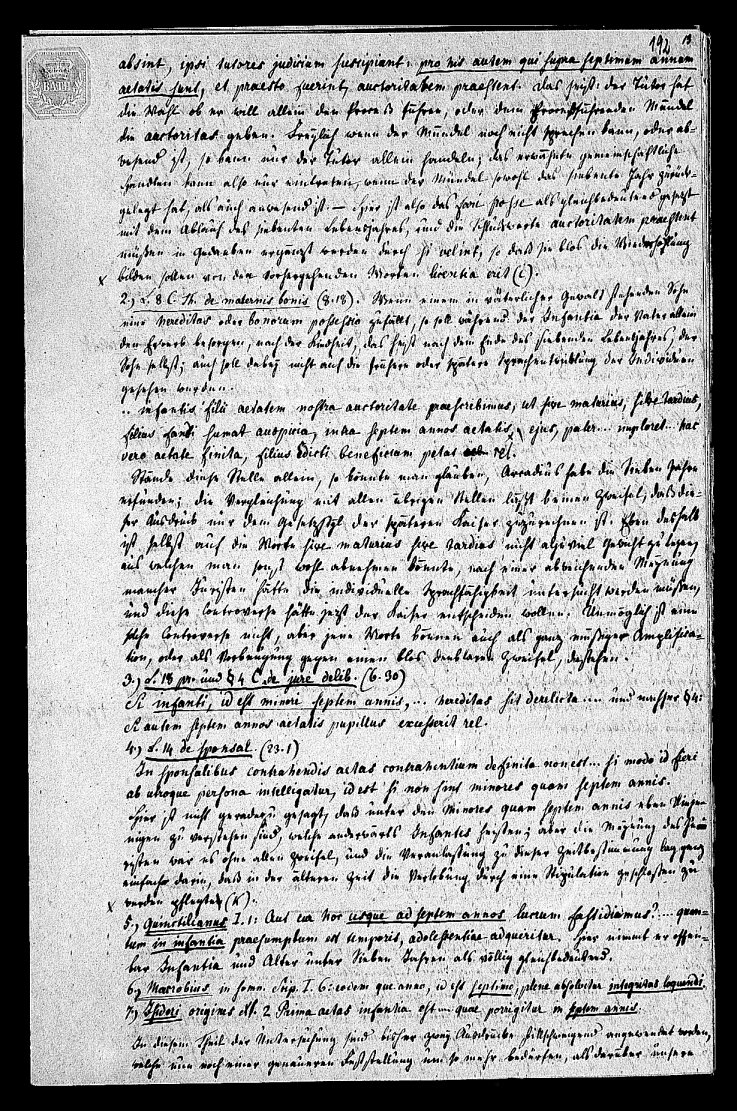 192 13
absint, ipsi tutores judicium suscipiant: pro his autem qui supra septimum annum
aetatis sunt, et praesto fuerint, auctoritatem praestent. Das heißt: der Tutor hat
die Wahl ob er will allein den Proceß führen, oder dem Proceßführenden Mündel
die auctoritas geben. Freylich wenn der Mündel noch nicht sprechen kann, oder ab-
wesend ist, so kann nur der Tutor allein handeln; das erwähnte gemeinschaftliche
Handeln kann also nur eintreten, wenn der Mündel sowohl das siebente Jahr zurück-
gelegt hat, als auch anwesend ist. — Hier ist also das fari posse als gleichbedeutend gesetzt
mit dem Ablauf des siebenten Lebensjahres, und die Schlußworte auctoritatem praestent
müssen in Gedanken ergänzt werden durch si velint, so daß sie blos die Wiederholung
bilden sollen von den vorhergehenden Worten licentia erit (i).
2.) L. 8 C. Th. de maternis bonis (8.18). Wenn einem in väterlicher Gewalt stehenden Sohn
eine hereditas oder bonorum possessio zufällt, so soll während der Infantia der Vater allein
den Erwerb besorgen, nach der Kindheit, das heißt nach dem Ende des siebenten Lebensjahres, der
Sohn selbst; auch soll dabey nicht auf die frühere oder spätere Sprachentwicklung der Individuen
gesehen werden.
.. infantis filii aetatem nostra auctoritate praescribimus, ut sive maturius, sive tardius,
filius fandi sumat auspicia, intra septem annos aetatis ejus, pater ... imploret .. hac
vero aetate finita, filius edicti beneficium petat rel.
Stände diese Stelle allein, so könnte man glauben, Arcadius habe die sieben Jahre
erfunden; die Vergleichung mit allen übrigen Stellen läßt keinen Zweifel, daß die-
ser Ausdruck nur dem Gesetzstyl der späteren Kaiser zuzurechnen ist. Eben deshalb
ist selbst auf die Worte sive maturius sive tardius nicht allzuviel Gewicht zu legen
aus welchen man sonst wohl abnehmen könnte, nach einer abweichenden Meynung
mancher Juristen hätte die individuelle Sprachfähigkeit untersucht werden müssen,
und diese Controverse hätte jetzt der Kaiser entscheiden wollen. Unmöglich ist eine
solche Controverse nicht, aber jene Worte können auch als ganz müßige Amplifica-
tion, oder als Vorbeugung gegen einen blos denkbaren Zweifel, dastehen.
3.) L. 18 pr. und § 4 C. de jure delib. (6.30)
Si infanti, id est minori septem annis, ... hereditas sit derelicta .. und nachher § 4:
Si autem septem annos aetatis pupillus excesserit rel.
4.) L. 14 de sponsal. (23.1)
In sponsalibus contrahendis aetas contrahentium definita non est... si modo id fieri
ab utroque persona intelligatur, id est si non sint minores quam septem annis.
Hier ist nicht geradezu gesagt, daß unter den Minores quam septem annis eben diejen-
nigen zu verstehen sind, welche anderwärts Infantes heißen; aber die Meynung des Ju-
risten war es ohne allen Zweifel, und die Veranlassung zu dieser Zeitbestimmung lag ganz
einfach darin, daß in der älteren Zeit die Verlobung durch eine Stipulation geschlossen zu
werden pflegte (k).
5.) Quinctilianus I. 1: Aut cur hoc usque ad septem annos lucrum fastidiamus? ... quan-
tum in infantia praesumptum est temporis, adolescentiae adquiritur. Hier nimmt er offen-
bar Infantia und Alter unter sieben Jahren als völlig gleichbedeutend.
6.) Macrobius in somn. Scip. I. 6: eodem que anno, id est septimo, plene absolvitur integritas loquendi.
7.) Isidori origines XI. 2 Prima aetas infantia est ... quae porrigitur in septem annis.
In diesem Theil der Untersuchung sind bisher zwey Ausdrücke stillschweigend angewendet worden,
welche nun noch einer genaueren Feststellung um so mehr bedürfen, als darüber unsere